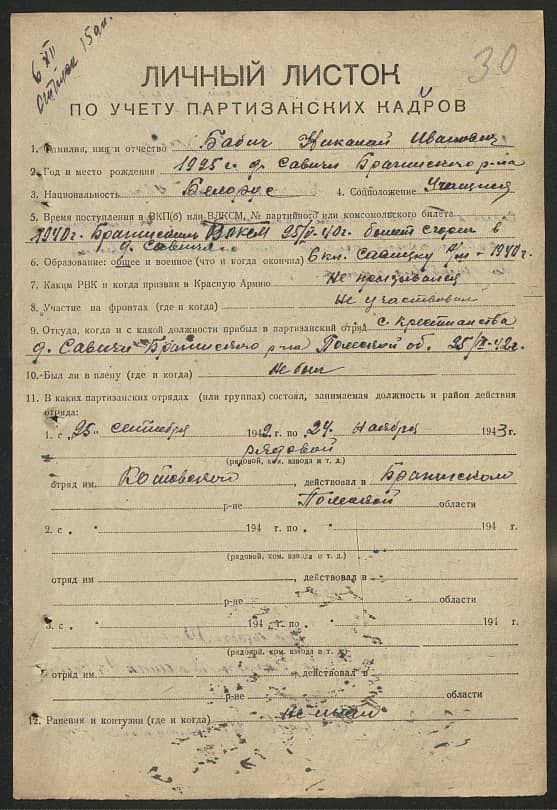 6 XII
30
ЛИЧНЫЙ ЛИСТОК
ПО УЧЕТУ ПАРТИЗАНСКИХ КАДРОВ
1. Фамилия, имя и отчество Бабич Николай Иванович
2. Год и место рождения 1925 г. д. Савичи Брагинского р-на
3. Национальность Белорус 4. Соцположение Учащийся
5. Время поступления в ВКП(б) или ВЛКСМ, № партийного или комсомольского билета
1940г. Брагинским ВЛКСМ 40г. билет сгорел в
д. Савичи
6. Образование: общее и военное (что и когда окончил) 6 кл. 1940г.
7. Каким РВК и когда призван в Красную Армию не призывался
8. Участие на фронтах (где и когда) не участвовал
9. Откуда, когда и с какой должности прибыл в партизанский отряд с крестьянства
д. Савичи Брагинского р-на Полесской об. 42г.
10. Был ли в плену (где и когда) не был
11. В каких партизанских отрядах (или группах) состоял, занимаемая должность и район действия
отряда:
1. с „25" сентября 1942г. по „24" ноября 1943г.
рядовой
(рядовой, ком. взвода и т. д.)
отряд им. Котовского, действовал в Брагинском
р-не Полесской области
2. с „ " 194 г. по „ " 194 г.
(рядовой, ком. взвода и т. д.)
отряд им, действовал в
р-не области
3. с „ " 194 г. по „ " 194 г.
(рядовой, ком. взвода и т. д.)
отряд им., действовал в
р-не области
12. Ранения и контузии (где и когда) не имел